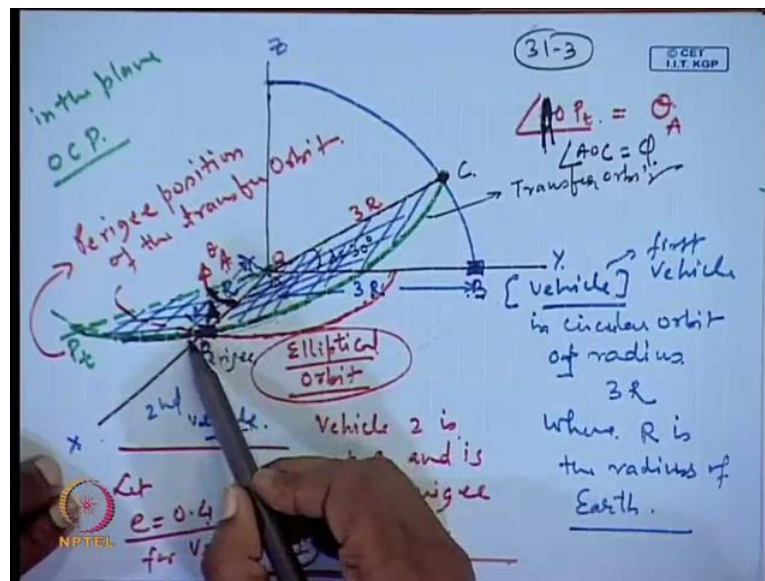 in the plane
OCP.
Perigee position
of the transfer orbit.
Z
31-3
© CET
I.I.T. KGP
∠AOPt = θA
∠AOC = φ.
Transfer orbit
C.
3R
θA
O
R
φ
A
Δi=30°
3R
Y.
B
[Vehicle]
first
vehicle
in circular orbit
of radius
3R
where R is
the radius of
Earth.
Pt
Elliptical
Orbit
X
2nd
Let
e = 0.4
for
Vehicle 2 is
and is
NPTEL